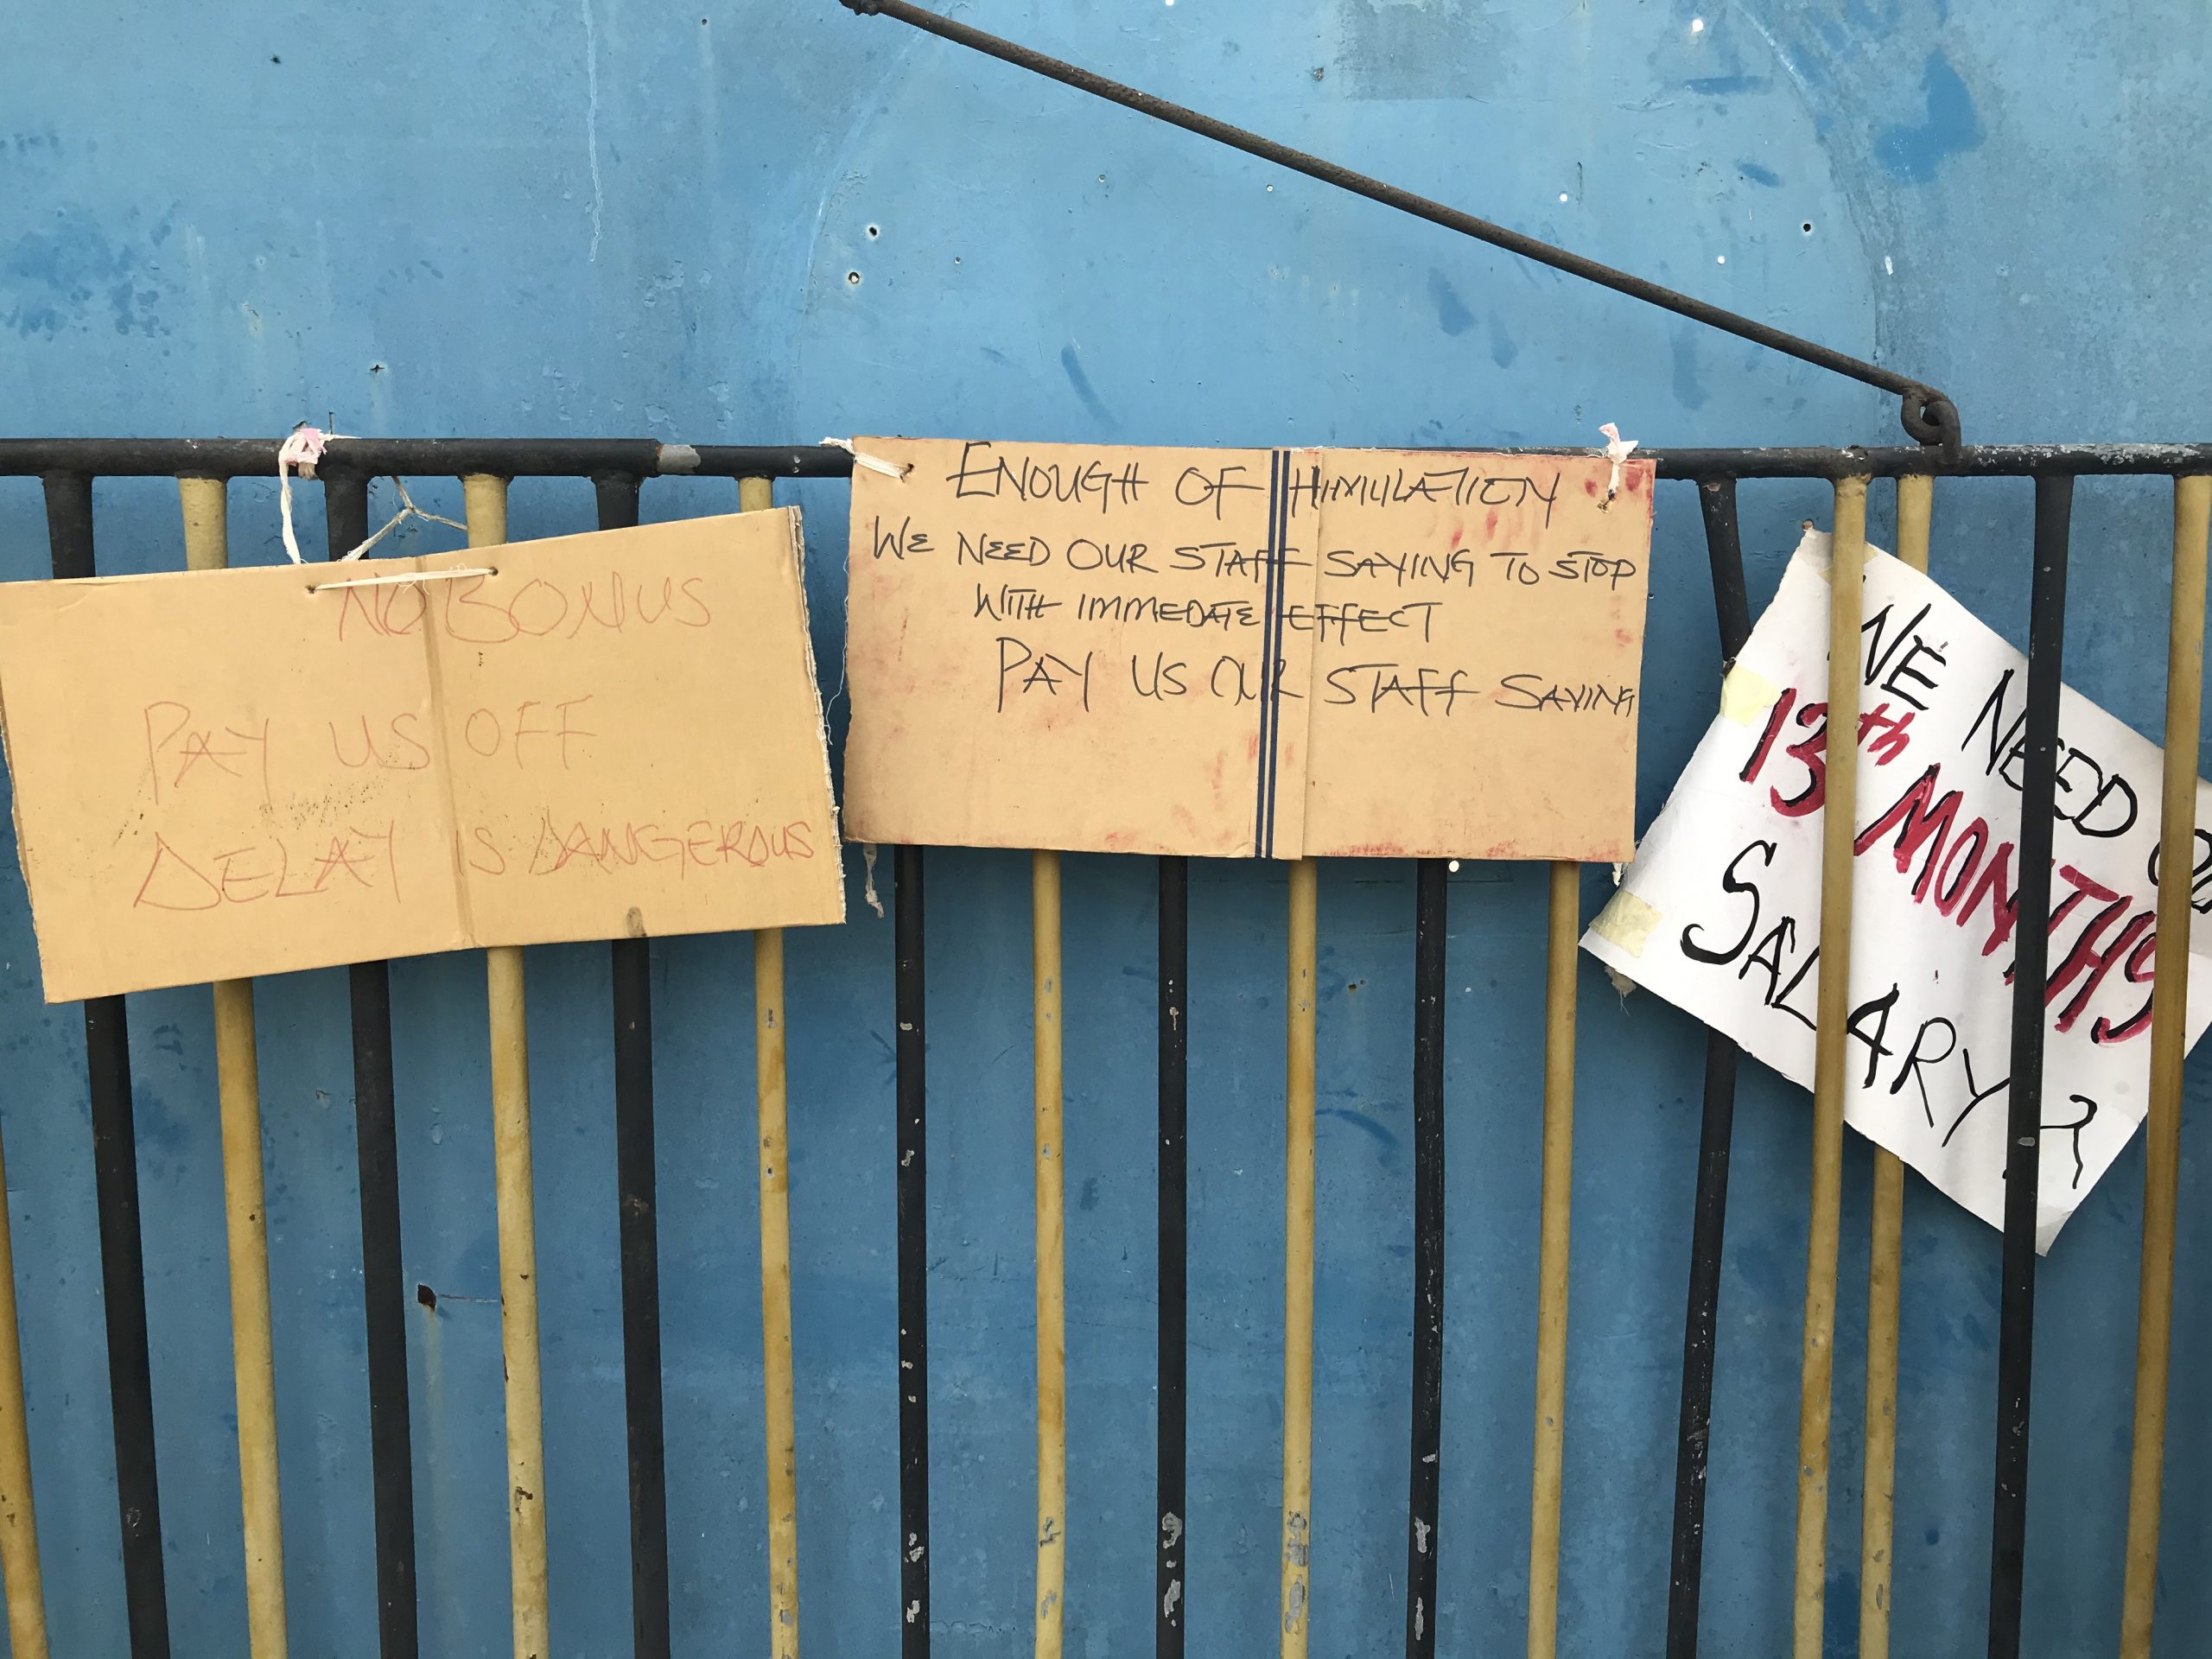 NO BONUS
PAY US OFF
DELAY IS DANGEROUS
ENOUGH OF HIMILATION
WE NEED OUR STAFF SAYING TO STOP
WITH IMMEDATE EFFECT
PAY US OUR STAFF SAVING
WE NEED OU
13th MONTHS
SALARY ?